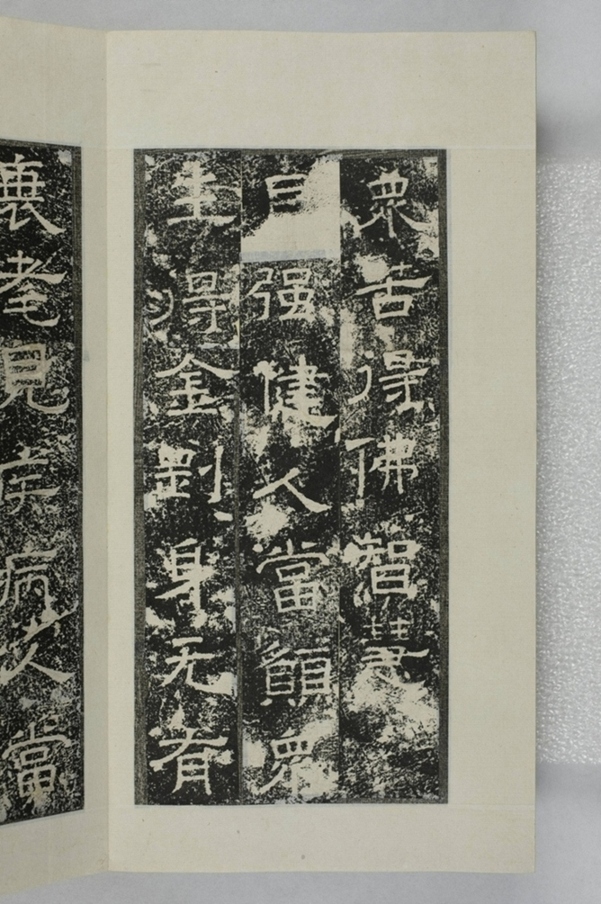 眾苦得佛智慧
見强健人當願眾
生得金剛身无有
衰耄見疾病人當